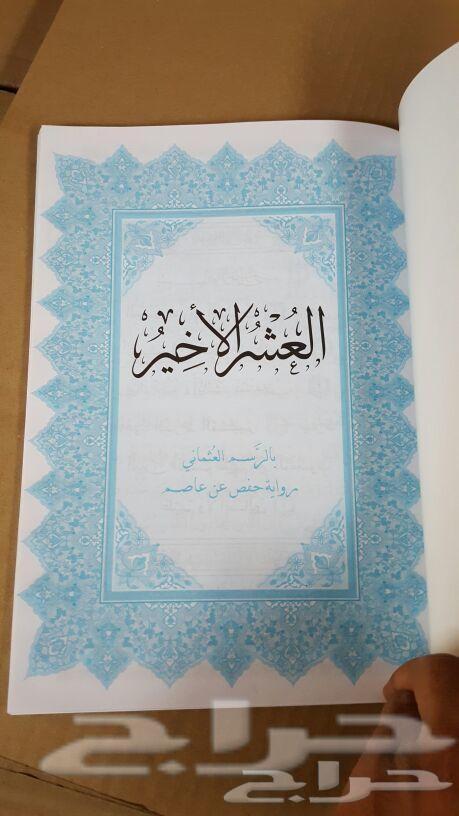 العُشْرُ الأَخِيرُ
بِالرَّسم العُثماني
رواية حفص عن عاصم
حراج
حراج